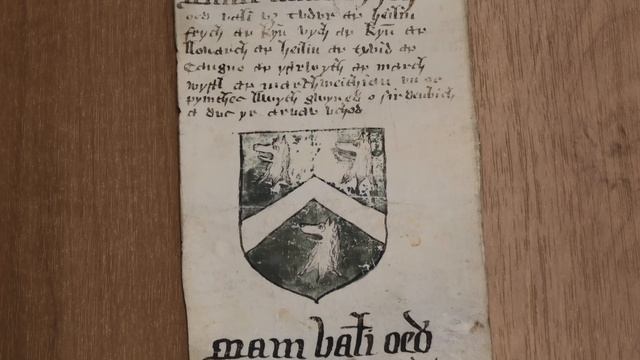 oed bati vz tvdvr ap heilin
frych ap kyn vych ap kyn ap
llowarch ap heilin ap tybid ap
tangno ap ystrwyth ap march
wystl ap marchweithian vn or
pymthec llwyth gwyned o sir denbich
a dvc yr arvav vchod
mam bati oed